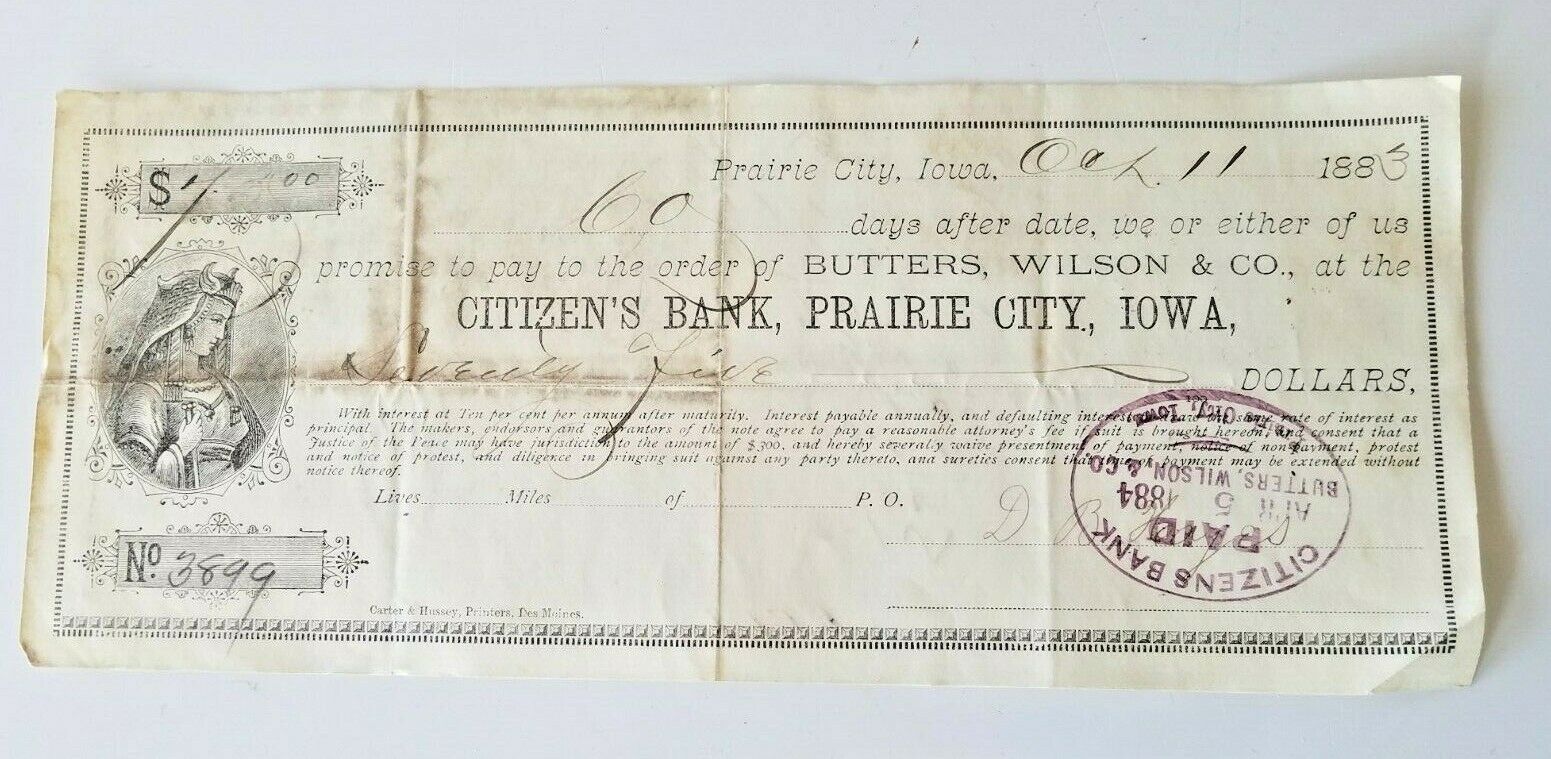 Prairie City, Iowa, Oct. 11 1883
$ 00
60 days after date, we or either of us
promise to pay to the order of BUTTERS, WILSON & CO., at the
CITIZEN'S BANK, PRAIRIE CITY, IOWA,
Seventy Five DOLLARS,
With interest at Ten per cent per annum after maturity. Interest payable annually, and defaulting interest to bear the same rate of interest as
principal. The makers, endorsors and guarantors of the note agree to pay a reasonable attorney's fee if suit is brought hereon, and consent that a
Justice of the Peace may have jurisdiction to the amount of $300, and hereby severally waive presentment of payment, notice of non-payment, protest
and notice of protest, and diligence in bringing suit against any party thereto, and sureties consent that time of payment may be extended without
notice thereof.
Lives Miles of P. O.
D B
No. 3899
Carter & Hussey, Printers, Des Moines.
CITIZENS BANK
PAID
APR 5 1884
BUTTERS, WILSON & CO.
City, Iowa